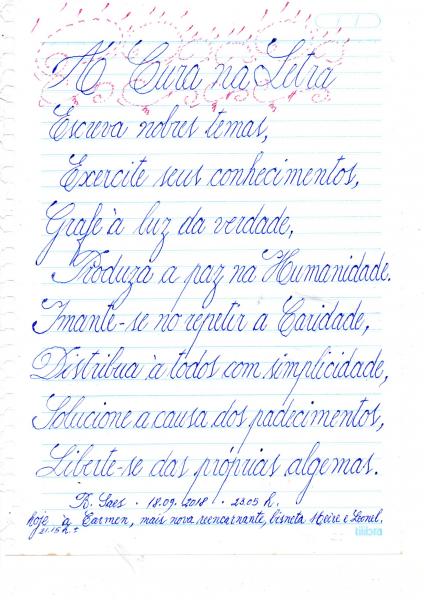 A Cura na Letra
Escreva nobres temas,
Exercite seus conhecimentos,
Grafe à luz da verdade,
Produza a paz na Humanidade.
Imante-se no repetir a Caridade,
Distribua à todos com simplicidade,
Solucione a causa dos padecimentos,
Liberte-se das próprias algemas.
R. Saes · 18.09.2018 · 23.05 h.
hoje à Carmen, mais nova reencarnante, bisneta Meire e Leonel.
21.15 h ±
tilibra